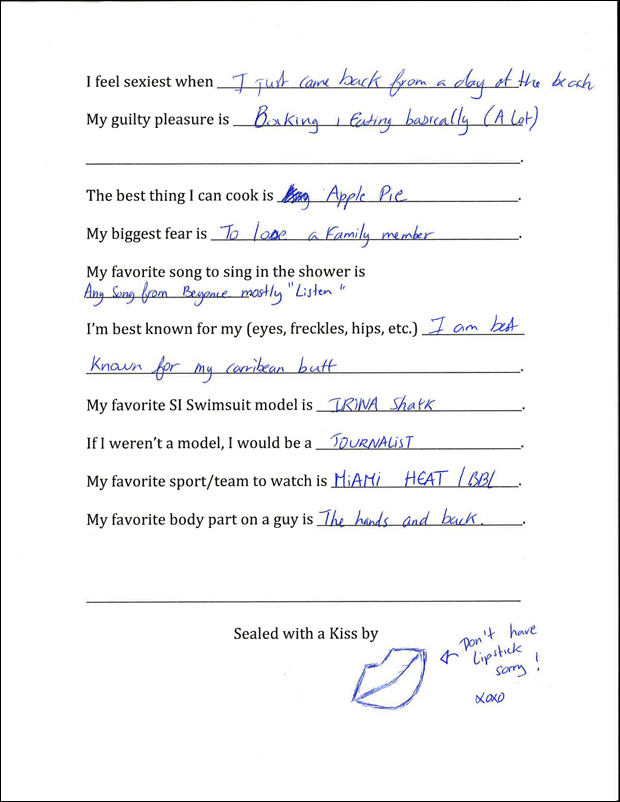 I feel sexiest when I just came back from a day at the beach
My guilty pleasure is Baking, Eating basically (A Lot)
.
The best thing I can cook is Apple Pie.
My biggest fear is To lose a Family member.
My favorite song to sing in the shower is
Any Song from Beyonce mostly "Listen"
I'm best known for my (eyes, freckles, hips, etc.) I am best
Known for my carribean butt.
My favorite SI Swimsuit model is IRINA Shark.
If I weren't a model, I would be a JOURNALIST.
My favorite sport/team to watch is MiAMi HEAT / BBL.
My favorite body part on a guy is The hands and back.
Sealed with a Kiss by
Don't have
Lipstick
sorry!
xoxo